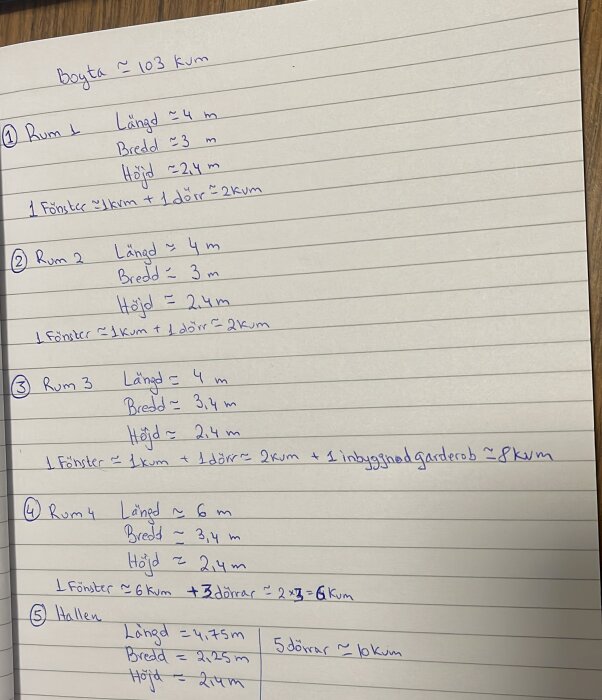 Boyta ≃ 103 kvm
① Rum 1 Längd ≃ 4 m
Bredd ≃ 3 m
Höjd ≃ 2,4 m
1 Fönster ≃ 1kvm + 1 dörr ≃ 2kvm
② Rum 2 Längd ≃ 4 m
Bredd ≃ 3 m
Höjd ≃ 2,4 m
1 Fönster ≃ 1kvm + 1 dörr ≃ 2kvm
③ Rum 3 Längd ≃ 4 m
Bredd ≃ 3,4 m
Höjd ≃ 2,4 m
1 Fönster ≃ 1kvm + 1 dörr ≃ 2kvm + 1 inbyggnad garderob ≃ 8kvm
④ Rum 4 Längd ≃ 6 m
Bredd ≃ 3,4 m
Höjd ≃ 2,4 m
1 Fönster ≃ 6kvm + 3 dörrar ≃ 2×3=6kvm
⑤ Hallen
Längd = 4,75m
Bredd = 2,25m
Höjd = 2,4m
5 dörrar ≃ 10kvm